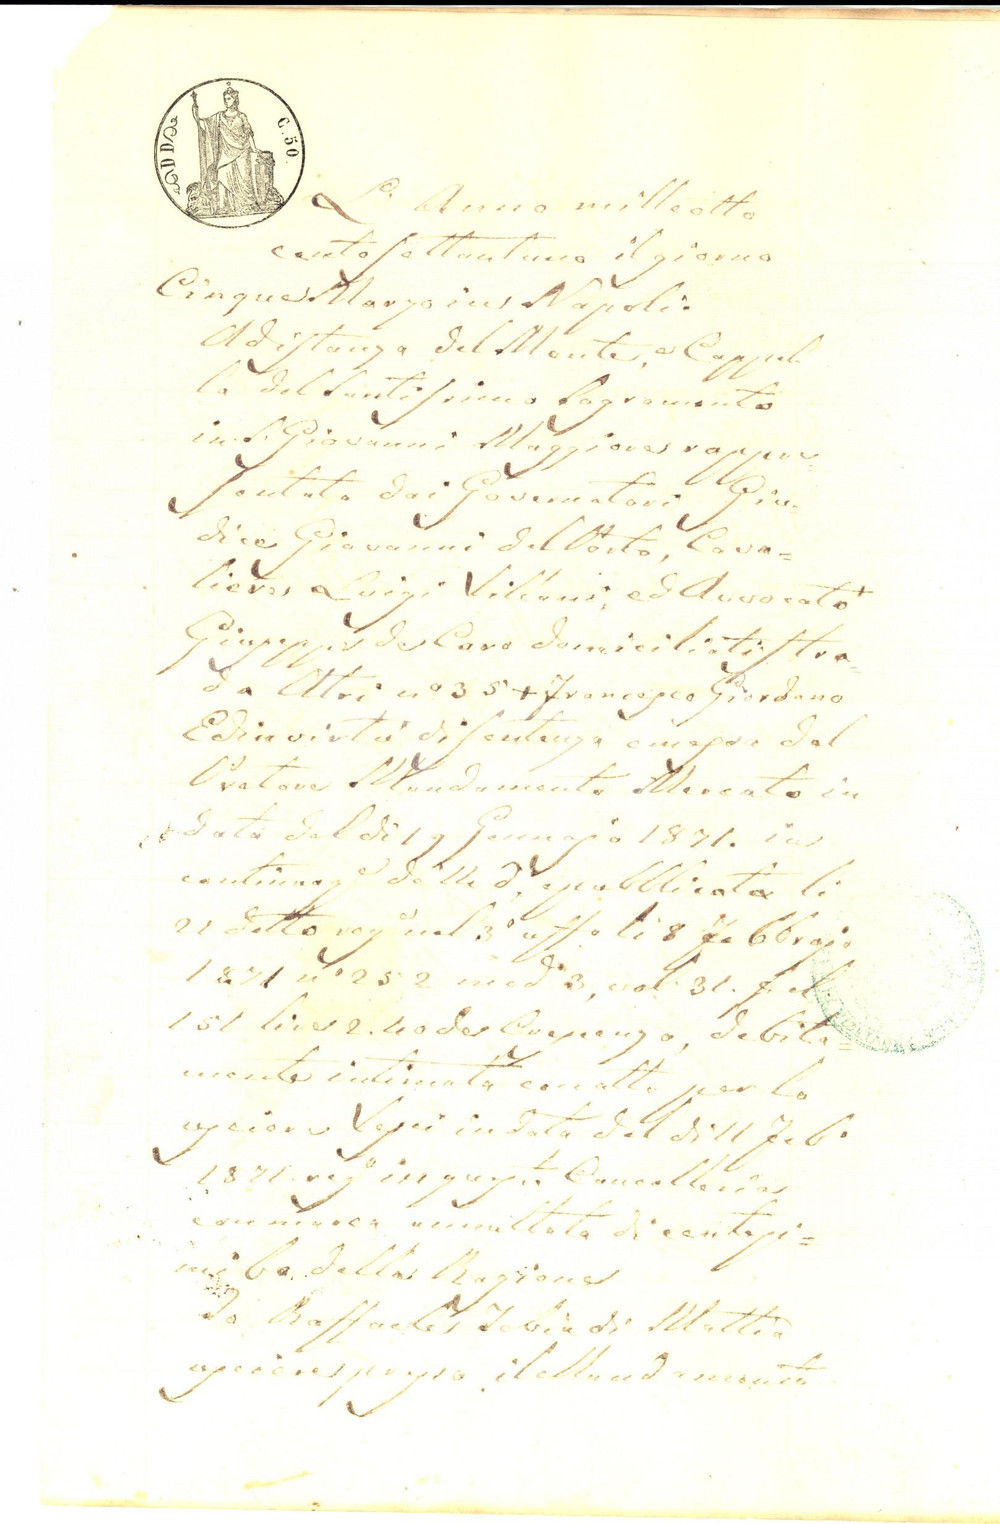 C. 50
L'Anno milleotto
cento settantuno il giorno
Cinque Marzo in Napoli.
Ad istanza del Monte, e Cappel
la del Santissimo Sagramento
in S. Giovanni Maggiore rappre=
sentata dai Governatori Giu=
dice Giovanni del Porto, Cava=
liere Luigi Villani, ed Avvocato
Giuseppe de Caro domiciliati stra=
da Atri n° 35 + Francesco Giordano
Ed in virtù di sentenza emessa dal
Pretore Mandamento Mercato in
data del di 19 Gennajo 1871. in
continuaz.e del d. e pubblicata li
21 detto reg.ta nel 3° uff.o li 8 Febbrajo
1871 n° 252 mod 3, vol. 31. f. el
151 lire 2.40 de Crescenzo, debita=
mente intimata con atto per lo
usciere in data del di 11 Feb.o
1871. reg.ta in questa Cancelleria
con marca annullata di centesi=
mi 60. della Ragione
Io Raffaele di Mattia
usciere presso il Mandamento